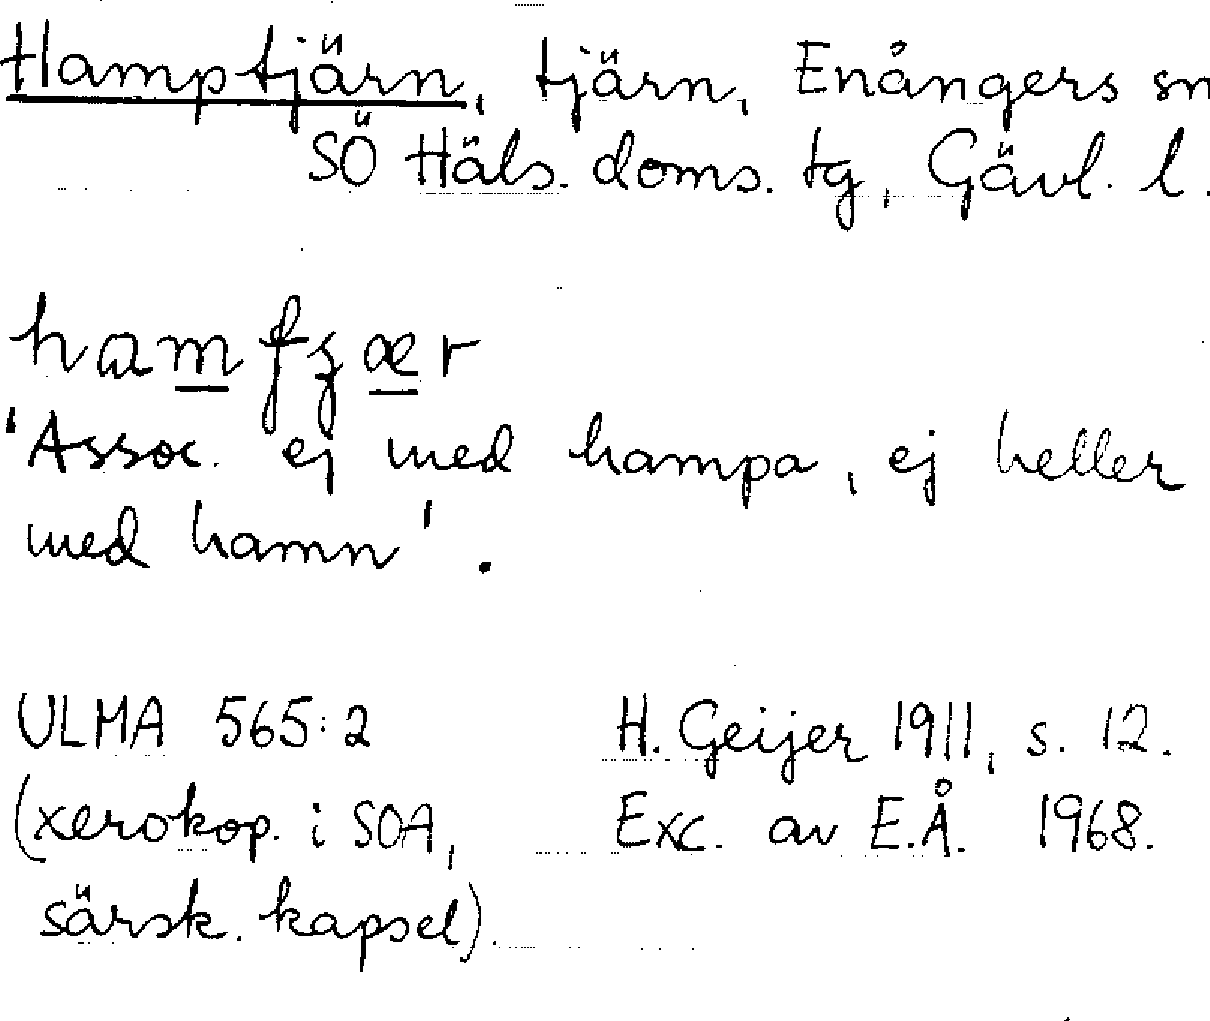 Hamptjärn, tjärn, Enångers sn
SÖ Häls. doms. tg, Gävl. l.
hamfʒær
'Assoc. ej med hampa, ej heller
med hamn'.
ULMA 565:2 H. Geijer 1911, s. 12.
(xerokop. i SOA, Exc. av E.Å. 1968.
särsk. kapsel).